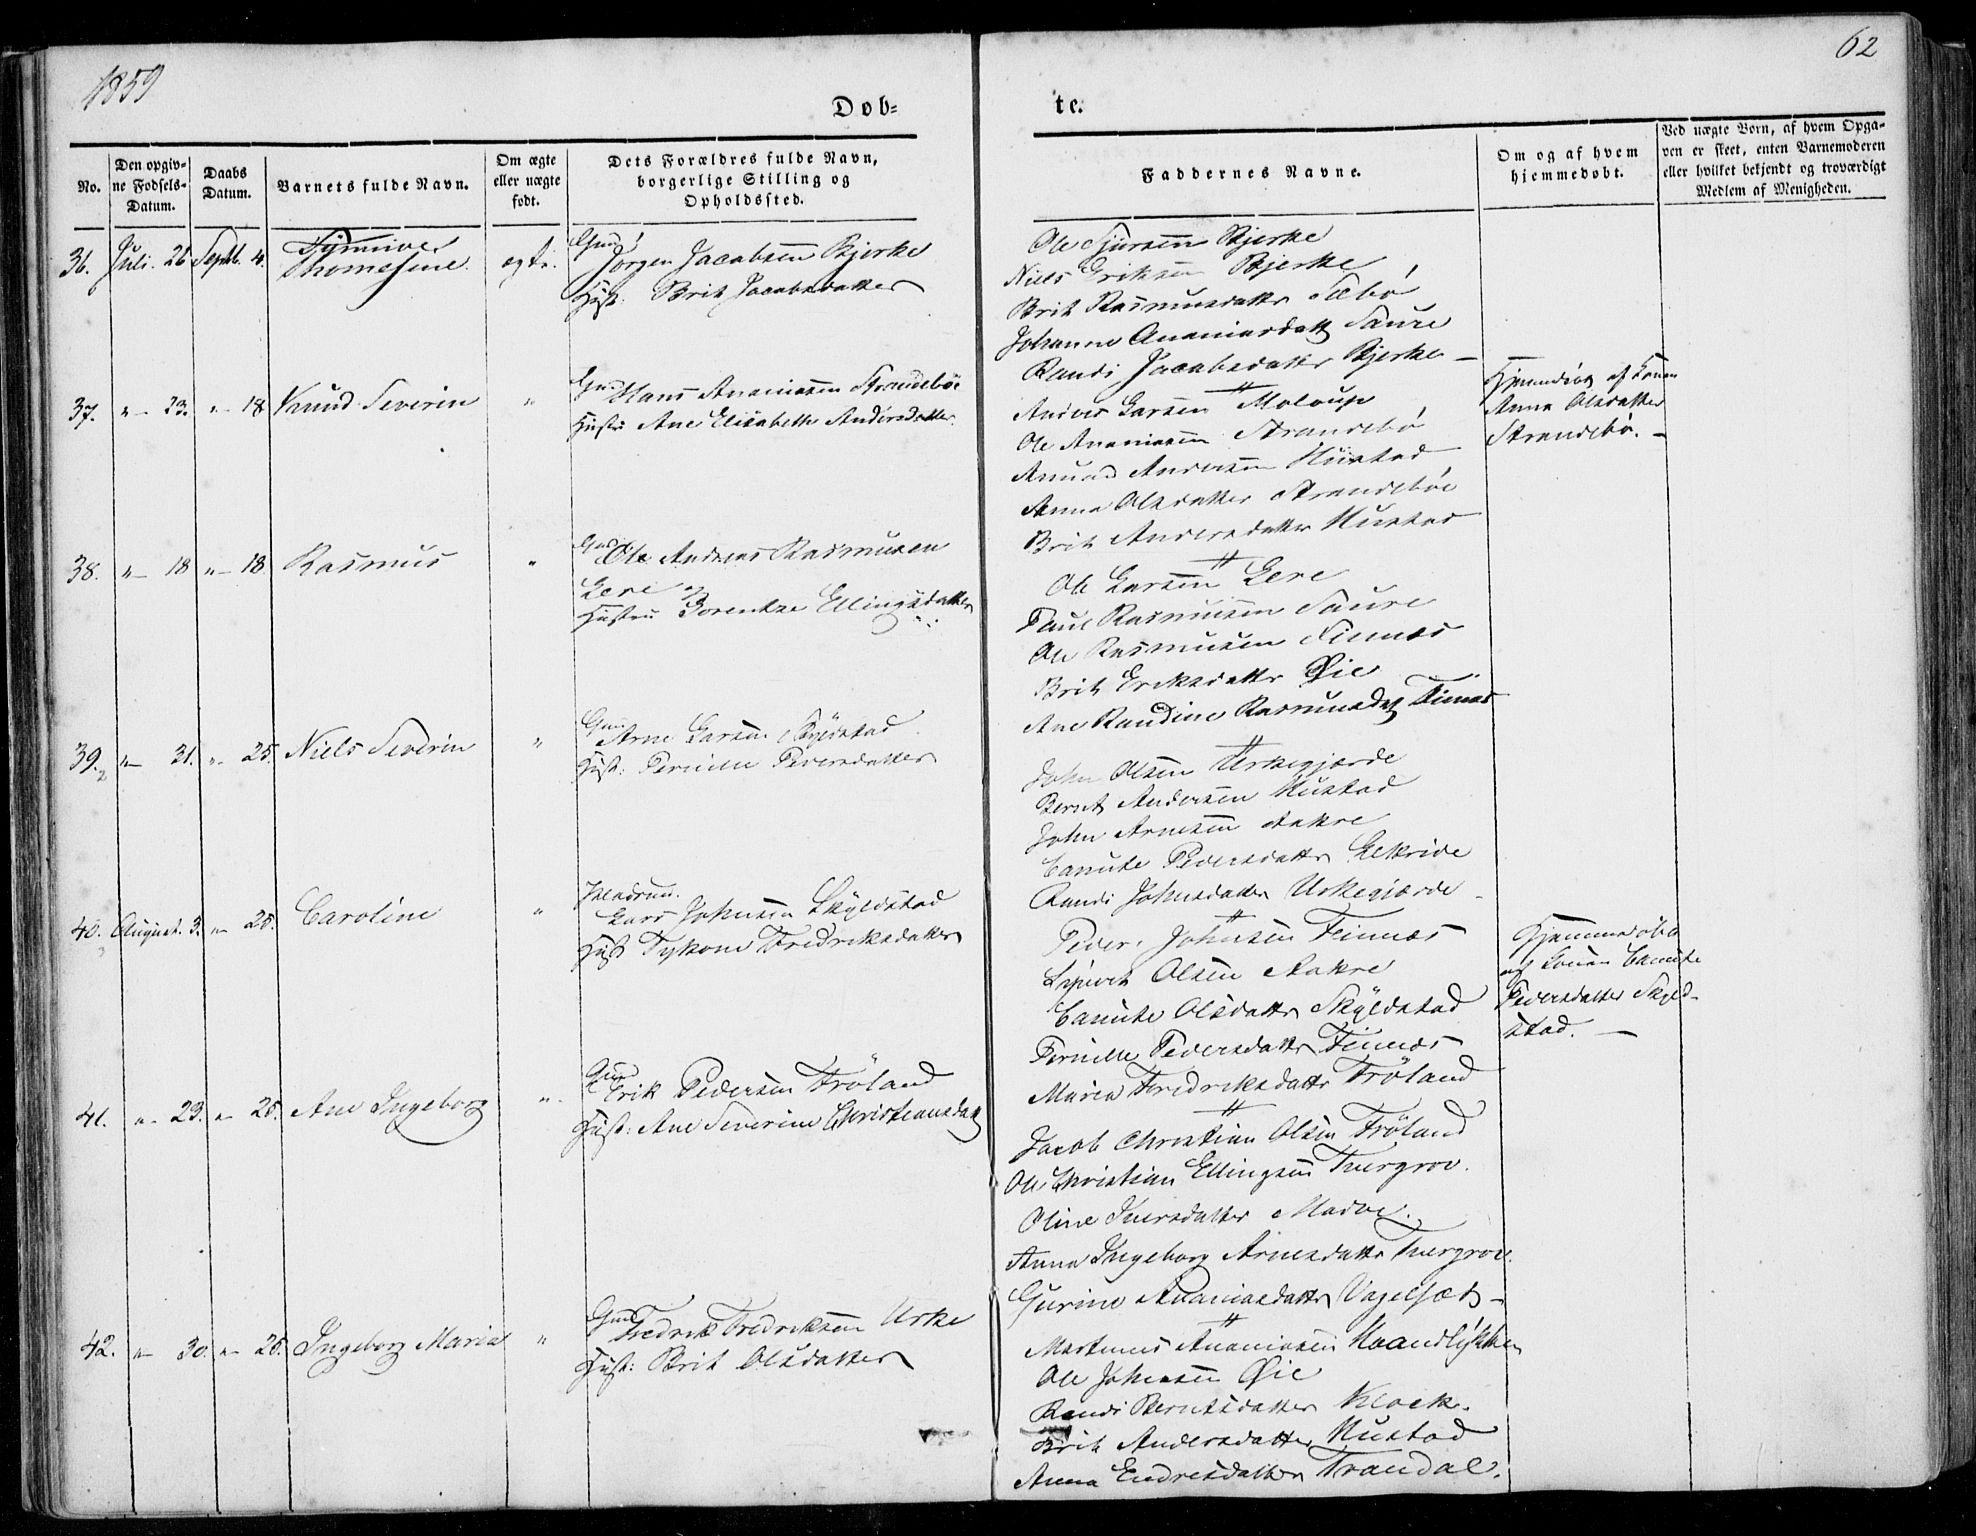 1859
62
Døb-
te.
No.
Den opgiv-
ne Fødsels-
Datum.
Daabs
Datum.
Barnets fulde Navn.
Om ægte
eller uægte
født.
Dets Forældres fulde Navn,
borgerlige Stilling og
Opholdssted.
Faddernes Navne.
Om og af hvem
hjemmedøbt.
Ved uægte Børn, af hvem Opga-
ven er skeet, enten Barnemoderen
eller hvilket bekjendt og troværdigt
Medlem af Menigheden.
36. Juli. 26 Septb. 4. Synnive
Thomesine. ægte.
Gmd
Jørgen Jacobsen Bjerke
Hust: Brit Jacobsdatter
Ole Sjursen Bjerke
Niels Eriksen Bjerke
Brit Rasmusdatter Sæbø
Johanne Ananiasdatt Saure
Randi Jacobsdatter Bjerke -
37. " - 23. " - 18 Knud Severin "
Gmd Hans Ananiasen Strandebøe
Hustr: Ane Elisabeth Andersdatter.
Anders Larsen Molaup
Ole Ananiasen Strandebø
Amund Andersen Hustad
Anna Olsdatter Strandebøe
Brit Andersdatter Hustad
Hjemmedøbt af Konen
Anna Olsdatter
Strandebø. -
38. " - 18 " - 18 Rasmus "
Gmd Ole Andreas Rasmusen
Lere
Hustru Lorentze Ellingsdatter
Ole Larsen Lere
Paul Rasmusen Saure
Ole Rasmusen Finnæs
Brit Eriksdatter Øie
Ane Randine Rasmusdat Finnæs
39. " - 31. " - 25. Niels Severin "
Gmd Arne Larsen Skyldstad
Hust: Pernille Pedersdatter
John Olsen Urkegjærde
Bernt Andersen Hustad
John Arnesen Aakre
Canute Pedersdatter Lekride
Randi Johnsdatter Urkegjærde -
40. August. 3. " - 25. Caroline "
Lars Johnsen Skyldstad
Hust Fredriksdatter
Peder Johnsen Finnæs
Sivert Olsen Aakre
Canute Olsdatter Skyldstad
Pernille Pedersdatter Finnæs
Maria Fredriksdatter Frøland
Hjemmedøbt
af Konen Canute
Pedersdatter Skyld-
stad. -
41. " - 23. " - 25. Ane Ingeborg "
Gmd
Erik Pedersen Frøland
Hust: Ane Severine Christiansdat
Jacob Christian Olsen Frøland
Ole Christian Ellingsen Tuergrov.
Oline Iversdatter Marve.
Anna Ingeborg Arnesdatter Tuergrov.
Gurine Ananiasdatter Vagelsæt -
42. " - 30. " - 25. Ingeborg Maria "
Gmd Fredrik Fredriksen Urke
Hust: Brit Olsdatter
Martinus Ananiasen Haandlykken
Ole Johnsen Øie
Randi Berntsdatter Klock.
Brit Andersdatter Hustad
Anna Endresdatter Trandal.